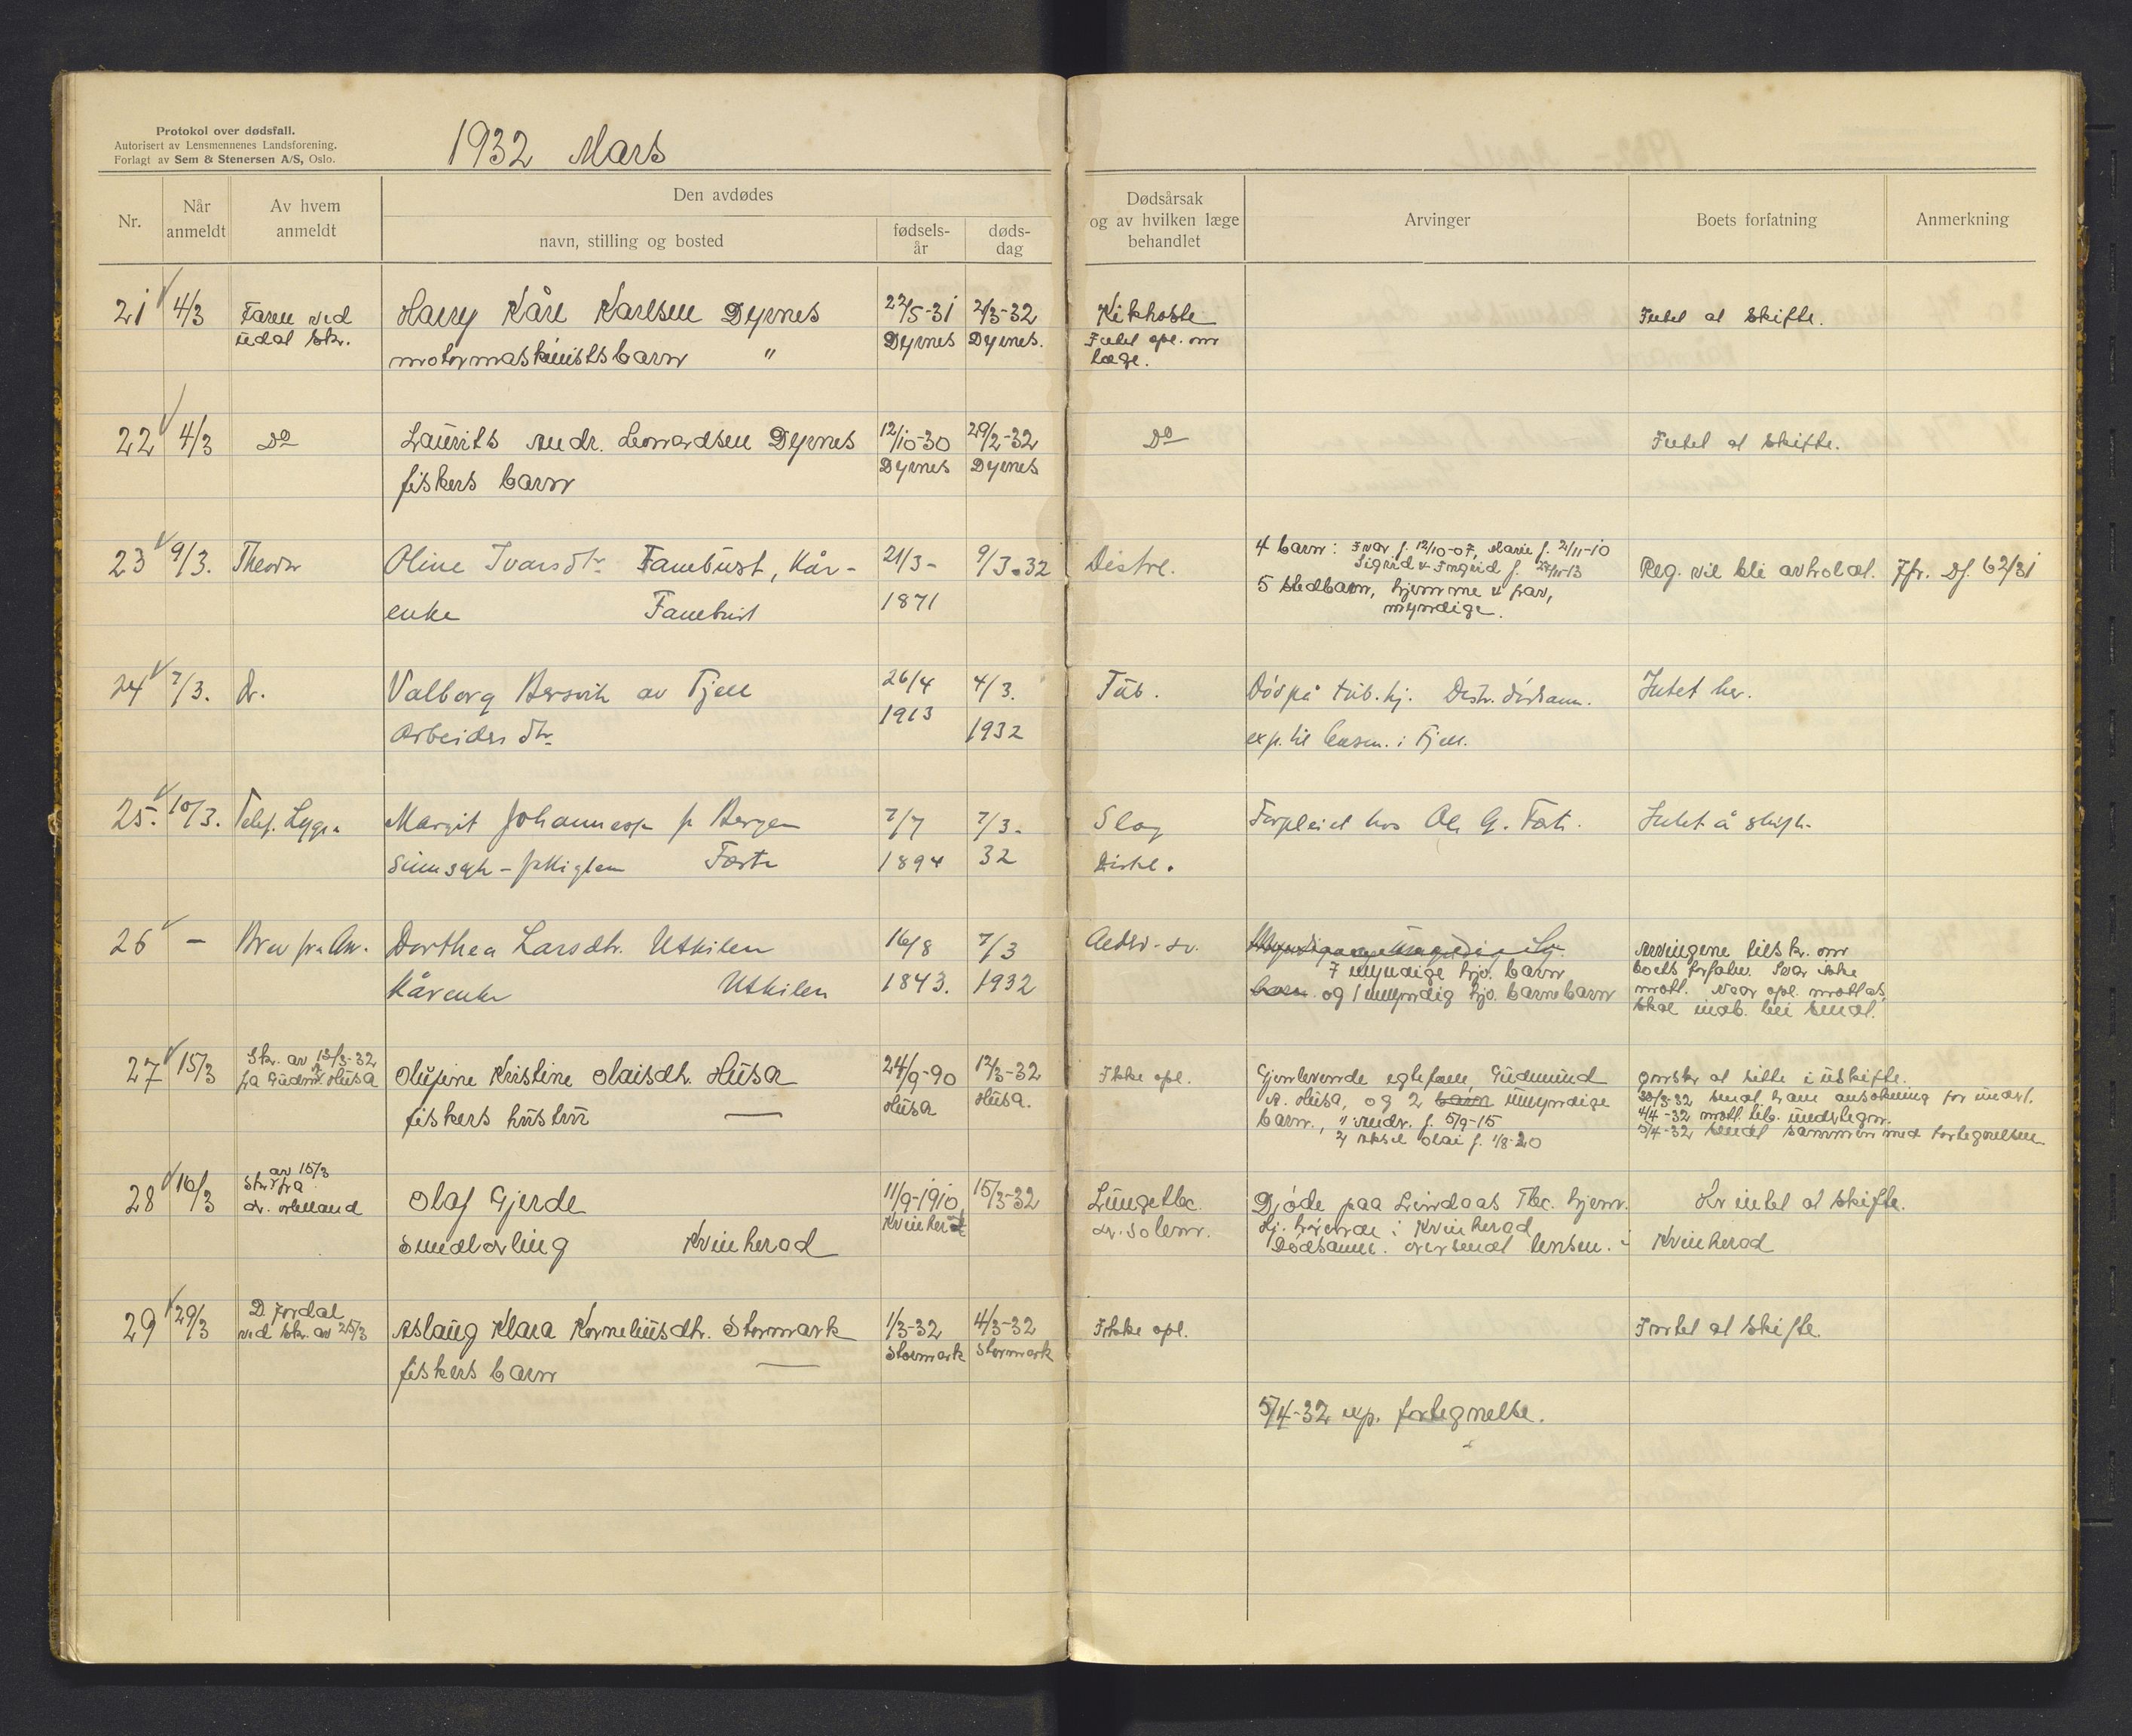 Protokol over dødsfall.
Autorisert av Lensmennenes Landsforening.
Forlagt av Sem & Stenersen A/S, Oslo.
1932 Mars
Nr.
Når anmeldt
Av hvem anmeldt
Den avdødes
navn, stilling og bosted
fødsels-år
døds-dag
Dødsårsak
og av hvilken læge
behandlet
Arvinger
Boets forfatning
Anmerkning
21 4/3 Faren ved Harry Kåre Karlsen Dyrnes 22/5-31 2/3-32 Kikhoste Intet at skifte.
skr. motormaskinistsbarn " Dyrnes Dyrnes. Intet opl. om
læge.
22 4/3 Do Laurits Andr. Leonardsen Dyrnes 12/10-30 29/2-32 Do Intet at skifte.
fiskers barn Dyrnes Dyrnes
23 9/3. Theodor Oline Ivarsdtr Fanebust, kår- 21/3- 9/3.32 Distre. 4 barn: Ivar f. 12/10-07, Marie f. 2/11-10 Reg. vil bli avholdt. Jfr. Df. 62/31
Sigrid & Ingrid f.
enke Fanebust 1871 5 stedbarn, hjemme & frav,
myndige.
24 7/3. Dr. Valborg Bersvik av Fjell 26/4 4/3. Tub. Død på tub.hj. Distr. dødsanm. Intet her.
Arbeiders dtr 1913 1932 exp. til lensm. i Fjell.
25. 10/3. Telef. Margit Johannesen fr Bergen 7/7 7/3- Slag Forpleiet hos Ole G.
1894 32 Distre.
26 - Brev fra Dorthea Larsdtr. Utkilen 16/8 7/3 Arvingene tilskr. om
7 myndige hjv. barn boets forfatn. Svar ikke
Kårenke Utkilen 1843. 1932 barn og 1 umyndig hjv. barnebarn mott. Naar opl. mottas,
skal indb. bli sendt.
27 15/3 Skr. av 13/3-32 Olufine Kristine Olaisdtr. Husa 24/9-90 12/3-32 Ikke opl. Gjenlevende egtefælle, Gudmund Ønsker at sitte i uskifte.
fra Gudm. A. Husa Husa Husa. A. Husa, og 2 barn umyndige 30/3-32 sendt ham ansøkning for undert.
fiskers hustru — barn., 1) Andr. f. 5/9-15 4/4-32 mott. tilb. undertegn.
2) Aksel Olai f. 1/8-20 5/4-32 sendt sammen med fortegnelsen
28 16/3 Skr. av 15/3 fra Olaf Gjerde 11/9-1910 15/3-32 Lungetbc. Døde paa Lindaas Tbc. hjem. Er intet at skifte.
dr. Kvinherad dr. Solem. Hj. hørende i Kvinherad
Smedlærling Kvinherad Dødsanm. oversendt lensm. i Kvinherad
29 29/3 D. Jordal Aslaug Klara Korneliusdtr. Stormark 1/3-32 4/3-32 Ikke opl. Intet at skifte.
ved skr. av 25/3 Stormark Stormark
fiskers barn —
5/4-32 exp. fortegnelse.